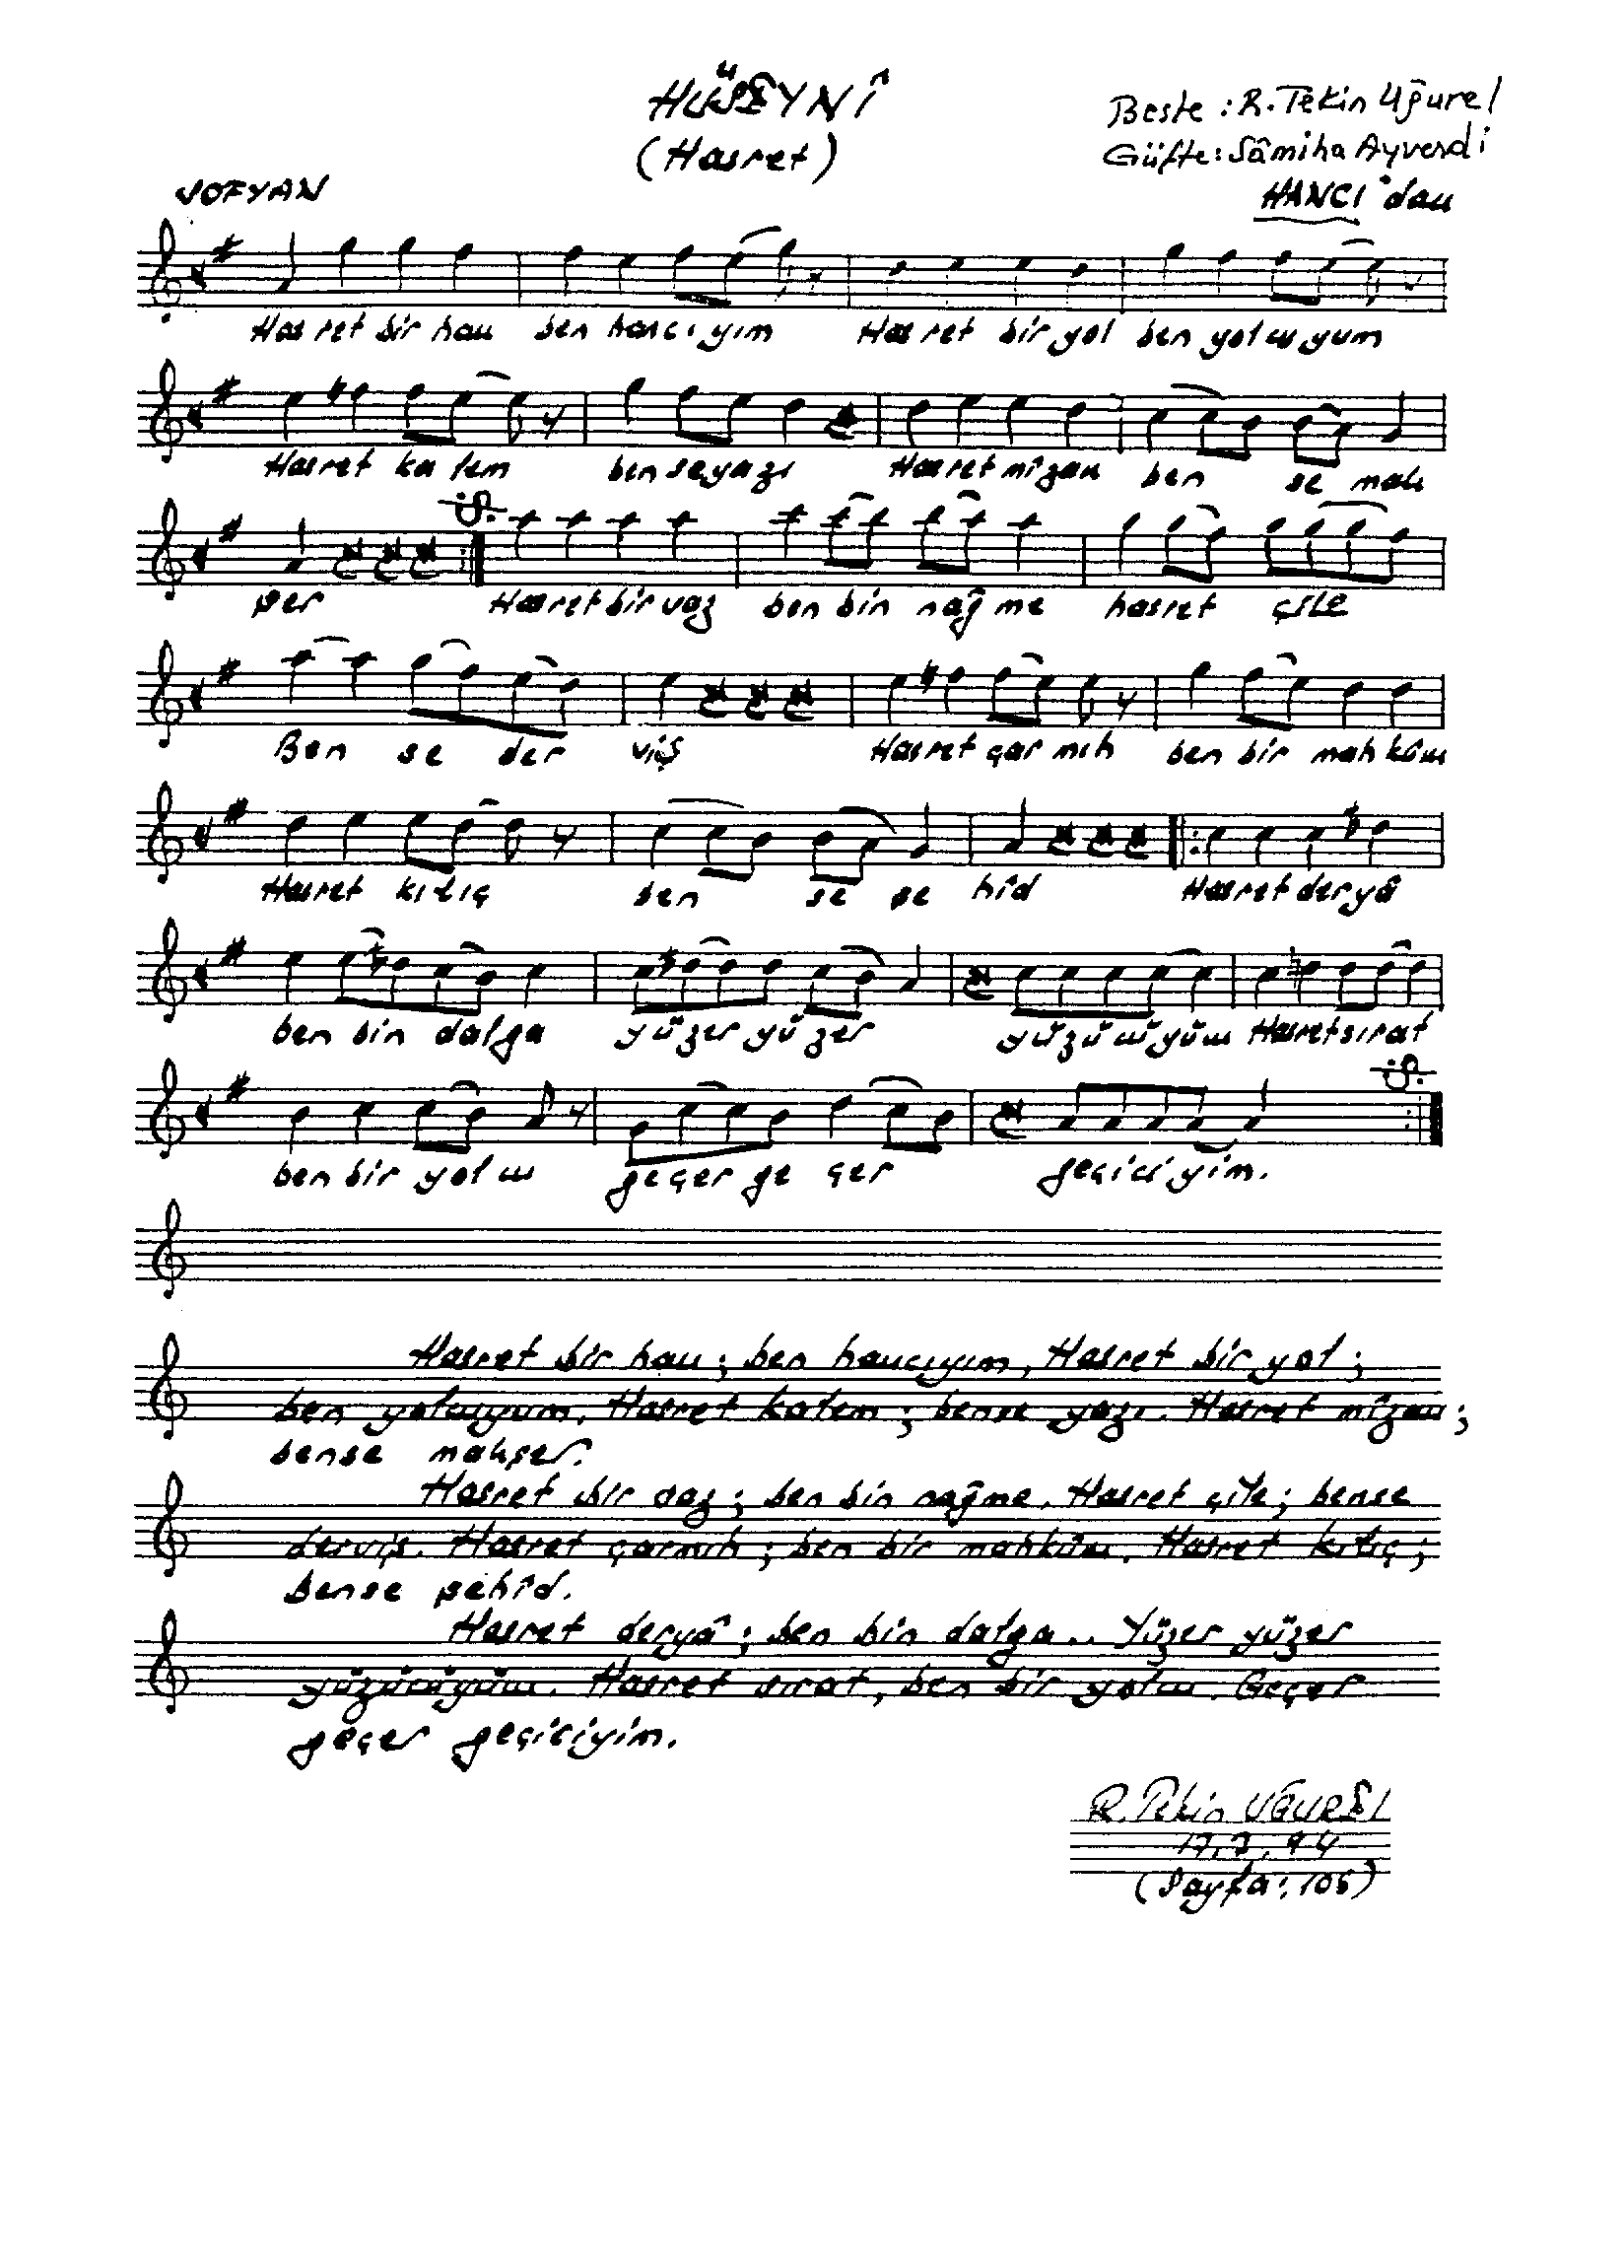 HÜSEYNÎ
(Hasret)
Beste : R. Tekin Uğurel
Güfte : Sâmiha Ayverdi
HANCI'dan
SOFYAN
Has ret bir han ben hancı yım Has ret bir yol ben yolcu yum
Hasret ka lem ben se yazı Hasret mîzan ben se mah
şer Hasret bir saz ben bin nağ me hasret çile
Ben se der viş Hasret çar mıh ben bir mah kûm
Hasret kı lıç ben se şe hîd Hasret der yâ
ben bin dalga yü zer yü zer yüzücü yüm Hasret sırat
ben bir yolcu geçer ge çer geçici yim.
Hasret bir han ; ben hancıyım, Hasret bir yol ;
ben yolcuyum. Hasret kalem ; bense yazı. Hasret mîzan ;
bense mahşer.
Hasret bir saz ; ben bin nağme. Hasret çile ; bense
derviş. Hasret çarmıh ; ben bir mahkûm. Hasret kılıç ;
bense şehîd.
Hasret deryâ ; ben bin dalga.. Yüzer yüzer
yüzücüyüm. Hasret sırat, ben bir yolcu. Geçer
geçer geçiciyim.
R. Tekin UĞUREL
17.7.94
(Sayfa : 105)